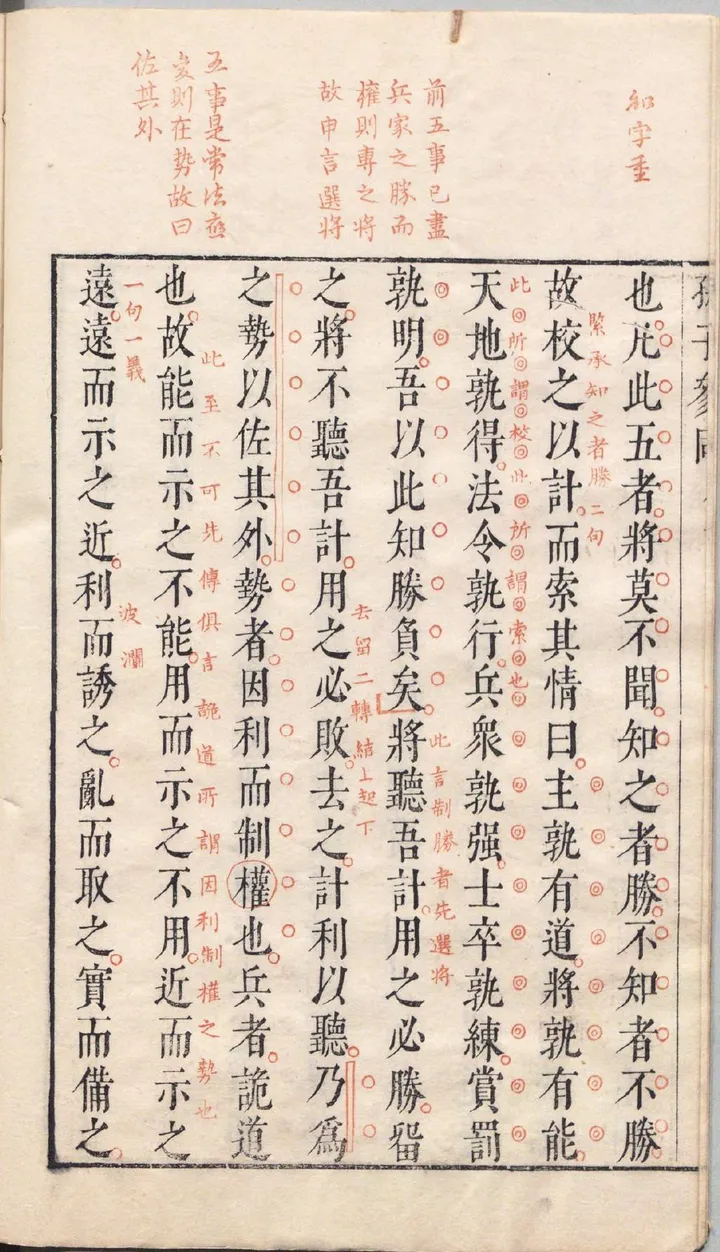 知字重
前五事已盡
兵家之勝而
権則專之將
故申言選將
五事是常法應
變則在勢故曰
佐其外
孫子參同
也凡此五者將莫不聞知之者勝不知者不勝
緊承知之者勝二句
故校之以計而索其情曰主孰有道將孰有能
此所謂校此所謂索也
天地孰得法令孰行兵衆孰强士卒孰練賞罰
孰明吾以此知勝負矣將聽吾計用之必勝留
此言制勝者先選將
之將不聽吾計用之必敗去之計利以聽乃爲
去留二轉結上起下
之勢以佐其外勢者因利而制權也兵者詭道
也故能而示之不能用而示之不用近而示之
此至不可先傳俱言詭道所謂因利制權之勢也
一句一義
波瀾
遠遠而示之近利而誘之亂而取之實而備之